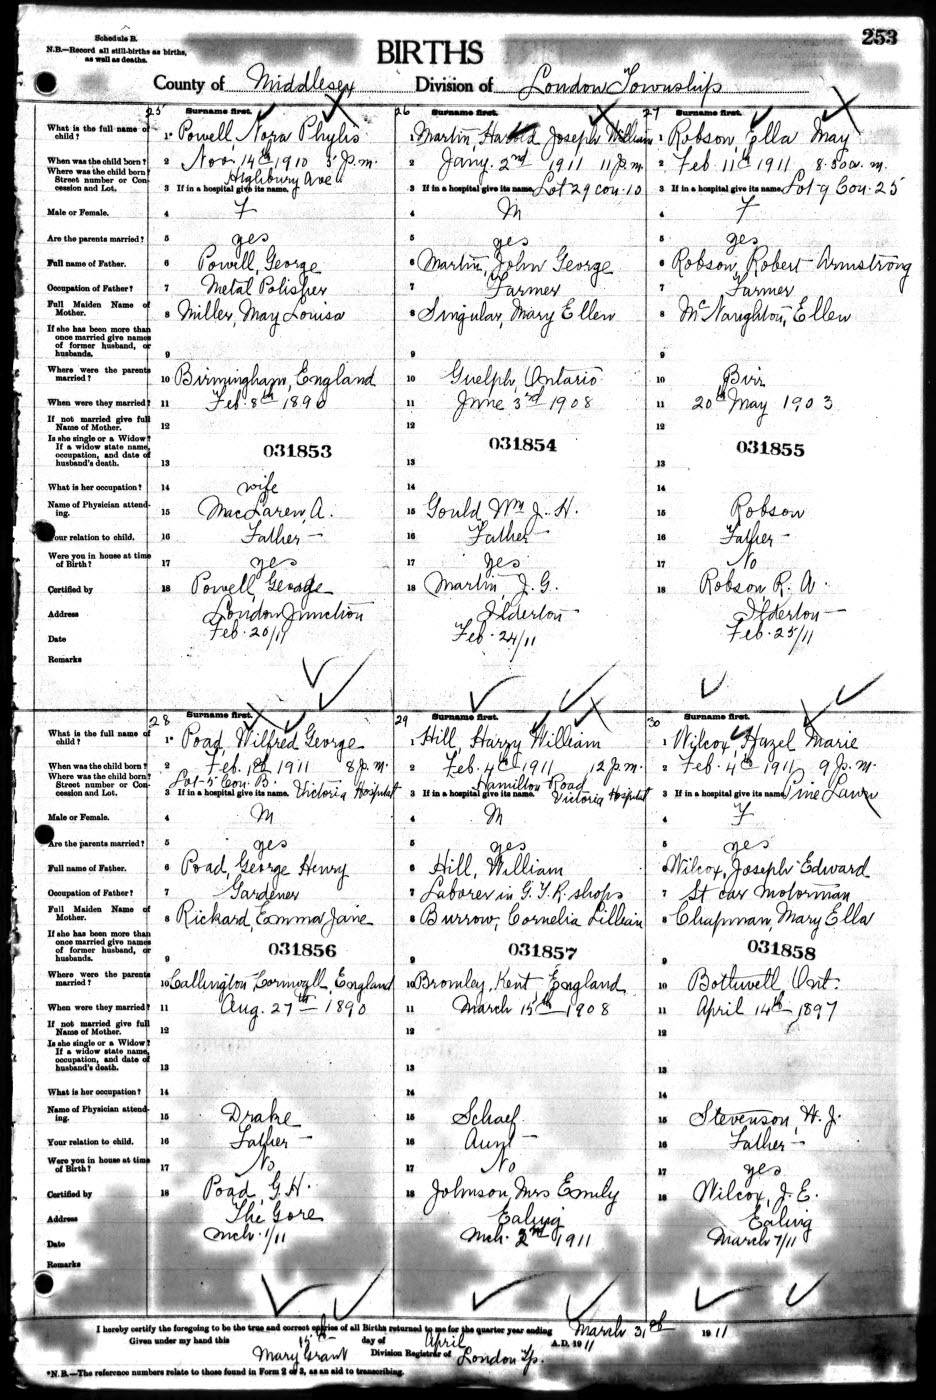 Schedule B.
N.B.—Record all still-births as births,
as well as deaths.
BIRTHS
253
County of Middlesex Division of London Township
25 Surname first. 26 Surname first. 27 Surname first.
What is the full name of child? 1* Powell, Nora Phylis 1 Martin, Harold Joseph William 1 Robson, Ella May
When was the child born? 2 Nov. 14th 1910 5 p.m. 2 Jany. 2nd 1911 11 p.m. 2 Feb 11th 1911 8.30 a.m.
Where was the child born? Street number or Concession and Lot. 3 If in a hospital give its name. Highbury Ave 3 If in a hospital give its name. Lot 29 con. 10 3 If in a hospital give its name. Lot 9 Con. 25
Male or Female. 4 F 4 M 4 F
Are the parents married? 5 yes 5 yes 5 yes
Full name of Father. 6 Powell, George 6 Martin, John George 6 Robson, Robert Armstrong
Occupation of Father? 7 Metal Polisher 7 Farmer 7 Farmer
Full Maiden Name of Mother. 8 Miller, May Louisa 8 Singular, Mary Ellen 8 McNaughton, Ellen
If she has been more than once married give names of former husband, or husbands. 9 9 9
Where were the parents married? 10 Birmingham, England 10 Guelph, Ontario 10
When were they married? 11 Feb. 8th 1890 11 June 3rd 1908 11 20th May 1903
If not married give full Name of Mother. 12 12 12
Is she single or a Widow? If a widow state name, occupation, and date of husband's death. 13 031853 13 031854 13 031855
What is her occupation? 14 wife 14 14
Name of Physician attending. 15 MacLaren, A. 15 Gould Wm J. H. 15 Robson
Your relation to child. 16 Father — 16 Father — 16 Father —
Were you in house at time of Birth? 17 yes 17 yes 17 No
Certified by 18 Powell, George 18 Martin, J. G. 18 Robson, R. A.
Address London Junction Ilderton Ilderton —
Date Feb. 20/11 Feb. 24/11 Feb. 25/11
Remarks
28 Surname first. 29 Surname first. 30 Surname first.
What is the full name of child? 1* Poad, Wilfred George 1 Hill, Harry William 1 Wilcox, Hazel Marie
When was the child born? 2 Feb. 1st 1911 8 p.m. 2 Feb. 4th 1911 12 p.m. 2 Feb. 4th 1911 9 p.m.
Where was the child born? Street number or Concession and Lot. 3 If in a hospital give its name. Lot 5 Con. B. Victoria Hospital 3 If in a hospital give its name. Hamilton Road Victoria Hospital 3 If in a hospital give its name. Pine Lawn
Male or Female. 4 M 4 M 4 F
Are the parents married? 5 yes 5 yes 5 yes
Full name of Father. 6 Poad, George Henry 6 Hill, William 6 Wilcox, Joseph Edward
Occupation of Father? 7 Gardener 7 Laborer in G.T.R. shops 7 St car Motorman
Full Maiden Name of Mother. 8 Rickard, Emma Jane 8 Burrow, Cornelia Lillian 8 Chapman, Mary Ella
If she has been more than once married give names of former husband, or husbands. 9 031856 9 031857 9 031858
Where were the parents married? 10 Callington Cornwall, England 10 Bromley, Kent England 10 Bothwell, Ont.
When were they married? 11 Aug. 27th 1890 11 March 15th 1908 11 April 14th 1897
If not married give full Name of Mother. 12 12 12
Is she single or a Widow? If a widow state name, occupation, and date of husband's death. 13 13 13
What is her occupation? 14 14 14
Name of Physician attending. 15 Drake 15 Schaef 15 Stevenson, H. J.
Your relation to child. 16 Father — 16 Aunt — 16 Father —
Were you in house at time of Birth? 17 No 17 No 17 yes
Certified by 18 Poad, G. H. 18 Johnson, Mrs Emily 18 Wilcox, J. E.
Address The Gore Ealing Ealing
Date Mch. 1/11 Mch. 2nd 1911 March 7/11
Remarks
I hereby certify the foregoing to be the true and correct entries of all Births returned to me for the quarter year ending March 31st 1911
Given under my hand this 15th day of April A.D. 1911
Mary Grant Division Registrar of London Tp.
*N.B.—The reference numbers relate to those found in Form 2 or 3, as an aid to transcribing.